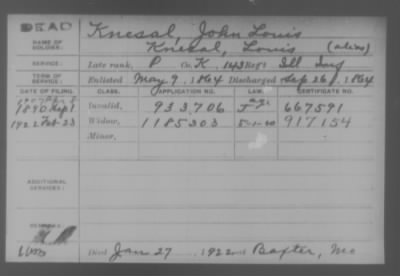 DEAD
NAME OF SOLDIER: Knesal, John Louis
Knesal, Louis (alias)
SERVICE: Late rank, P Co. K, 143 Regt Ill Inf
TERM OF SERVICE: Enlisted May 9, 1864 Discharged Sep 26, 1864
DATE OF FILING. CLASS. APPLICATION NO. LAW. CERTIFICATE NO.
1890 Invalid, 933,706 667591
1922 Feb-23 Widow, 1185303 5-1-20 917154
Minor,
ADDITIONAL SERVICES:
REMARKS:
Died Jan 27 1922 at Baxter, Mo